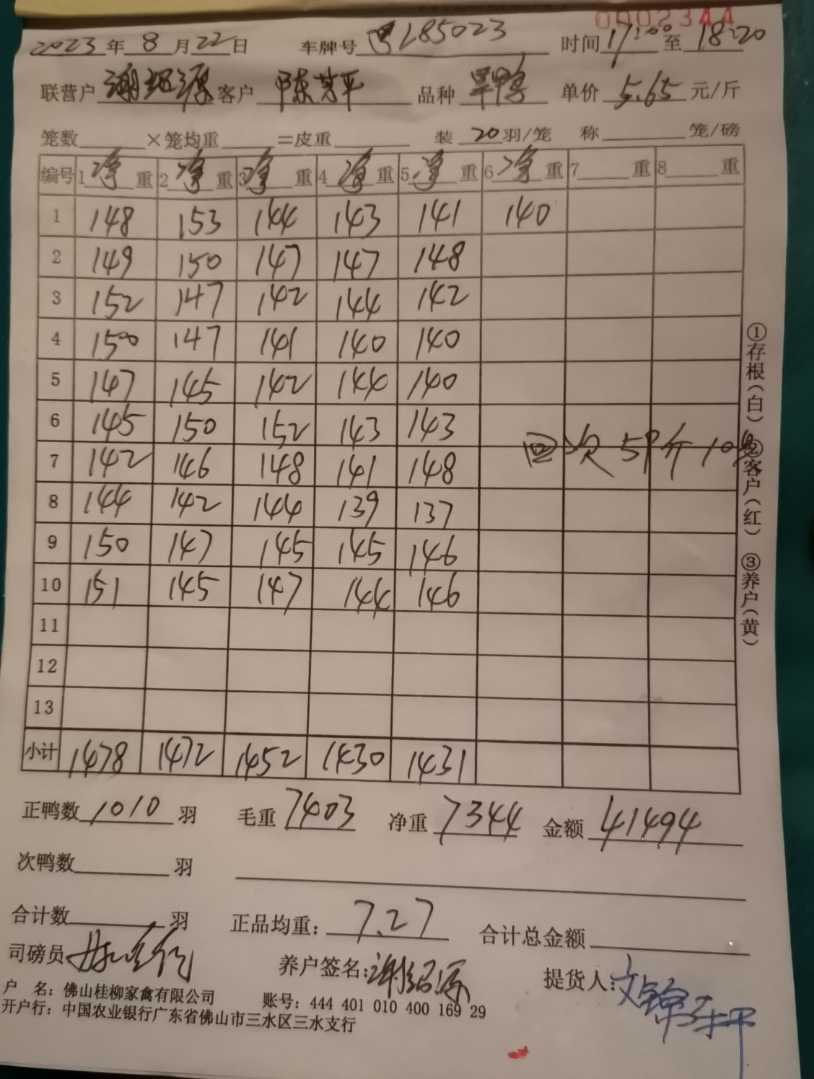 0002344
2023年8月22日 车牌号 粤L85023 时间17:00至18:20
联营户 谢绍源 客户 陈芳平 品种 旱鸭 单价 5.65 元/斤
笼数 ×笼均重 =皮重 装 20 羽/笼 称 笼/磅
编号 1净重 2净重 3净重 4净重 5净重 6净重 7 重 8 重
1 148 153 144 143 141 140
2 149 150 147 147 148
3 152 147 142 144 142
4 150 147 141 140 140
5 147 145 142 144 140
6 145 150 152 143 143
7 142 146 148 141 148
回次59斤10只
8 144 142 144 139 137
9 150 147 145 145 146
10 151 145 147 144 146
11
12
13
小计 1478 1472 1452 1430 1431
①存根(白) ②客户(红) ③养户(黄)
正鸭数 1010 羽 毛重 7403 净重 7344 金额 41494
次鸭数 羽
合计数 羽 正品均重: 7.27 合计总金额
司磅员 养户签名:谢绍源 提货人:
户 名: 佛山桂柳家禽有限公司 账号: 444 401 010 400 169 29
开户行: 中国农业银行广东省佛山市三水区三水支行